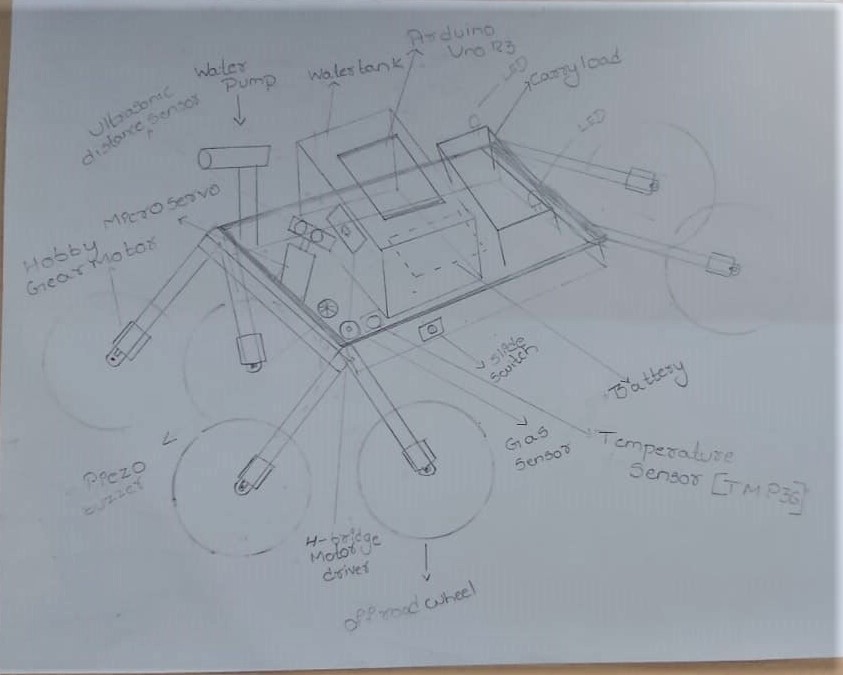 Arduino
Uno R3
LED
Carryload
Watertank
Water
Pump
Ultrasonic
distance sensor
LED
Micro Servo
Hobby
Gear Motor
Slide
Switch
Battery
Gas
Sensor
Temperature
Sensor [TMP36]
Piezo
buzzer
H-bridge
Motor
driver
Off road wheel